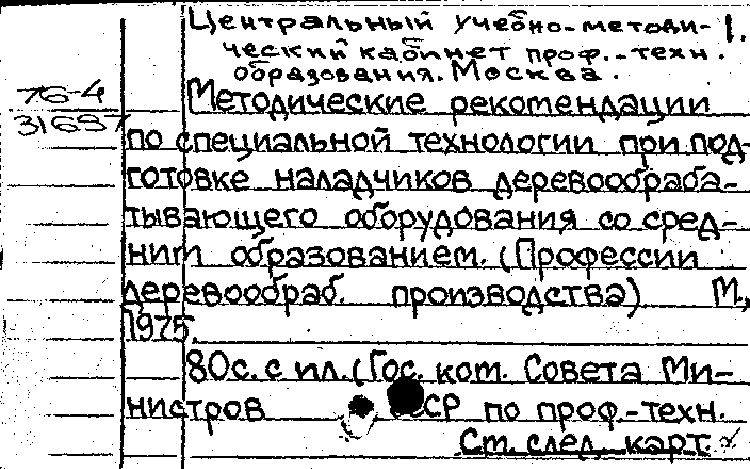 Центральный учебно-методи- 1.
ческий кабинет проф.-техн.
образования. Москва.
76-4
31697
Методические рекомендации
по специальной технологии при под-
готовке наладчиков деревообраба-
тывающего оборудования со сред-
ним образованием. (Профессии
деревообраб. производства) М.,
1975.
80с. с ил. (Гос. ком. Совета Ми-
нистров СССР по проф.-техн.
См. след. карт.